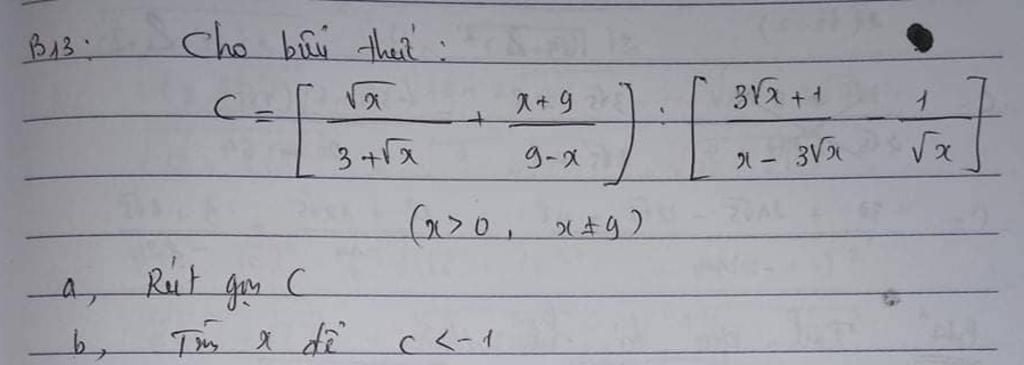 B13: Cho biểu thức:
C = [ √x / (3 + √x) + (x + 9) / (9 - x) ] : [ (3√x + 1) / (x - 3√x) - 1 / √x ]
(x > 0, x ≠ 9)
a, Rút gọn C
b, Tìm x để C < -1